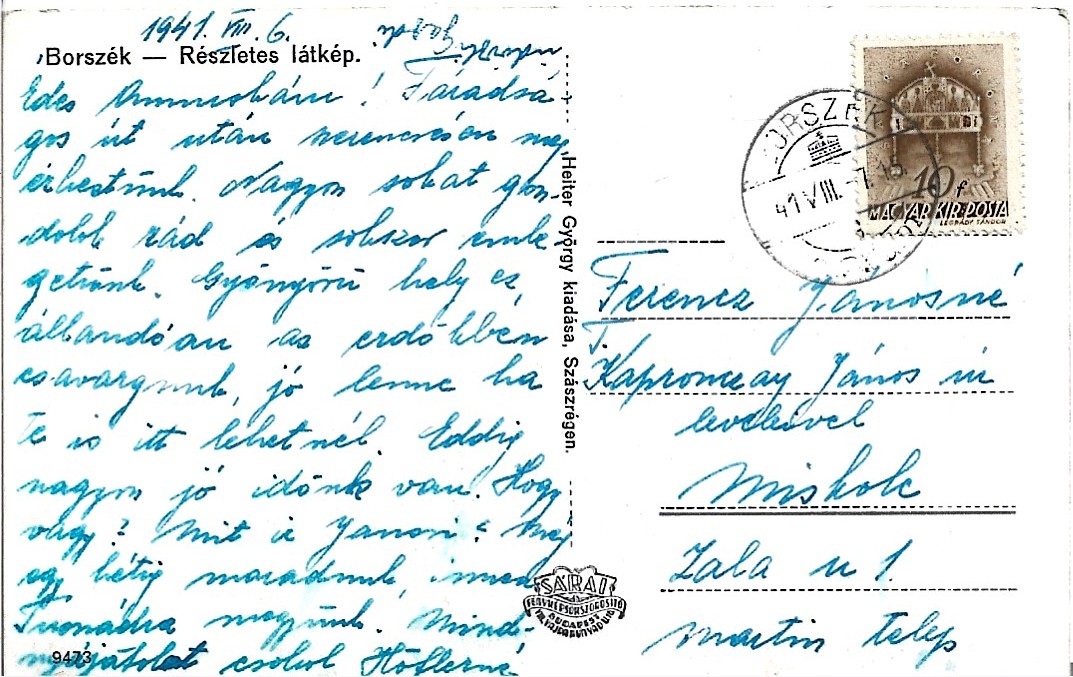 1941. VIII. 6.
Borszék — Részletes látkép.
Édes Anniskám! Fáradsá-
gos út után szerencsésen meg
érkeztünk. Nagyon sokat gon-
dolok rád és sokszor emle-
getünk. Gyönyörű hely ez,
állandóan az erdőkben
csavargunk, jó lenne ha
te is itt lehetnél. Eddig
nagyon jó időnk van. Hogy
vagy? Mit ír Jancsi? Még
egy hétig maradunk, innen
megyünk. Mind-
nyájatokat csókol Höflerné
9473
Heiter György kiadása, Szászrégen.
SÁRAI
FÉNYKÉPSOKSZOROSITÓ
BUDAPEST
BORSZÉK
41 VIII. -7. 18
10 f
MAGYAR KIR. POSTA
LÉGRÁDY SÁNDOR
Ferencz Jánosné
T.
Kapronczay János úr
levelével
Miskolc
Zala u 1.
Martin telep